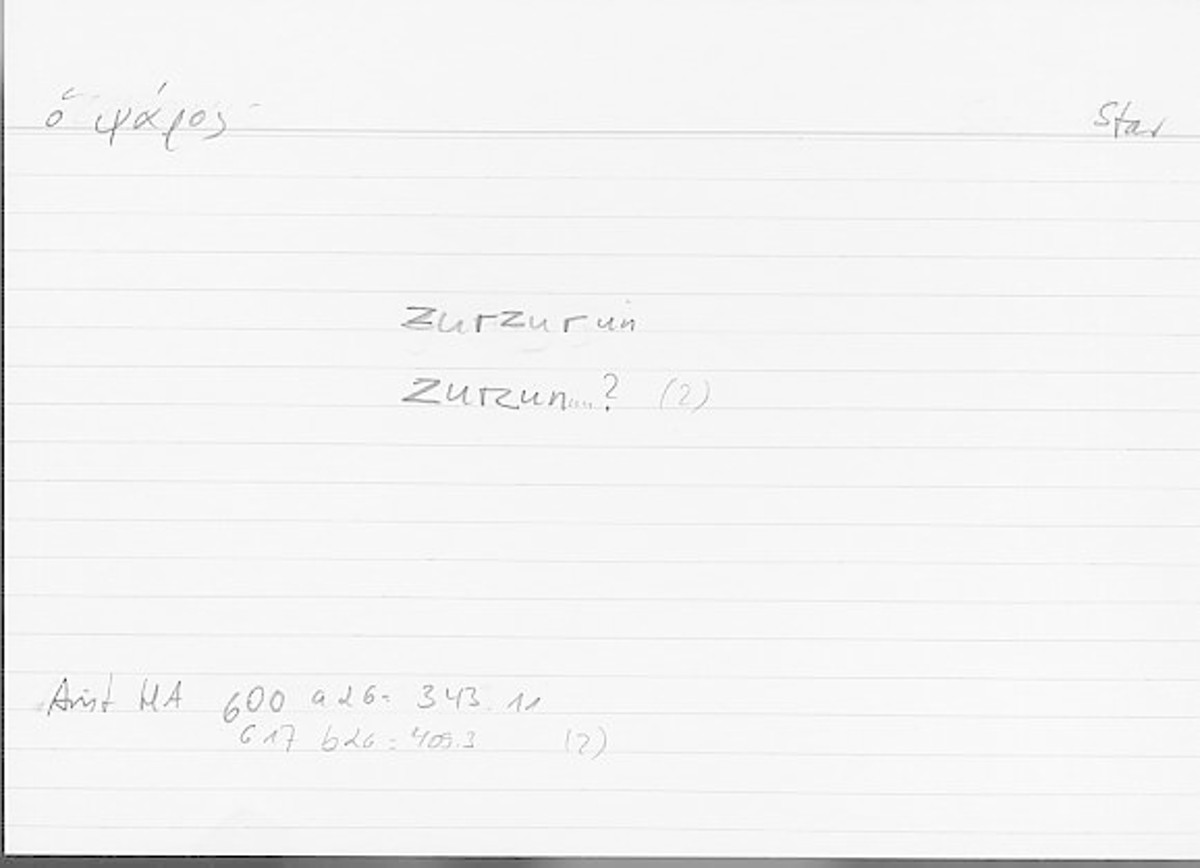 ὁ ψάρος Star
zurzurun
zurzun....? (2)
Arist HA 600 a 26 = 343.11
617 b26 = 405.3 (2)